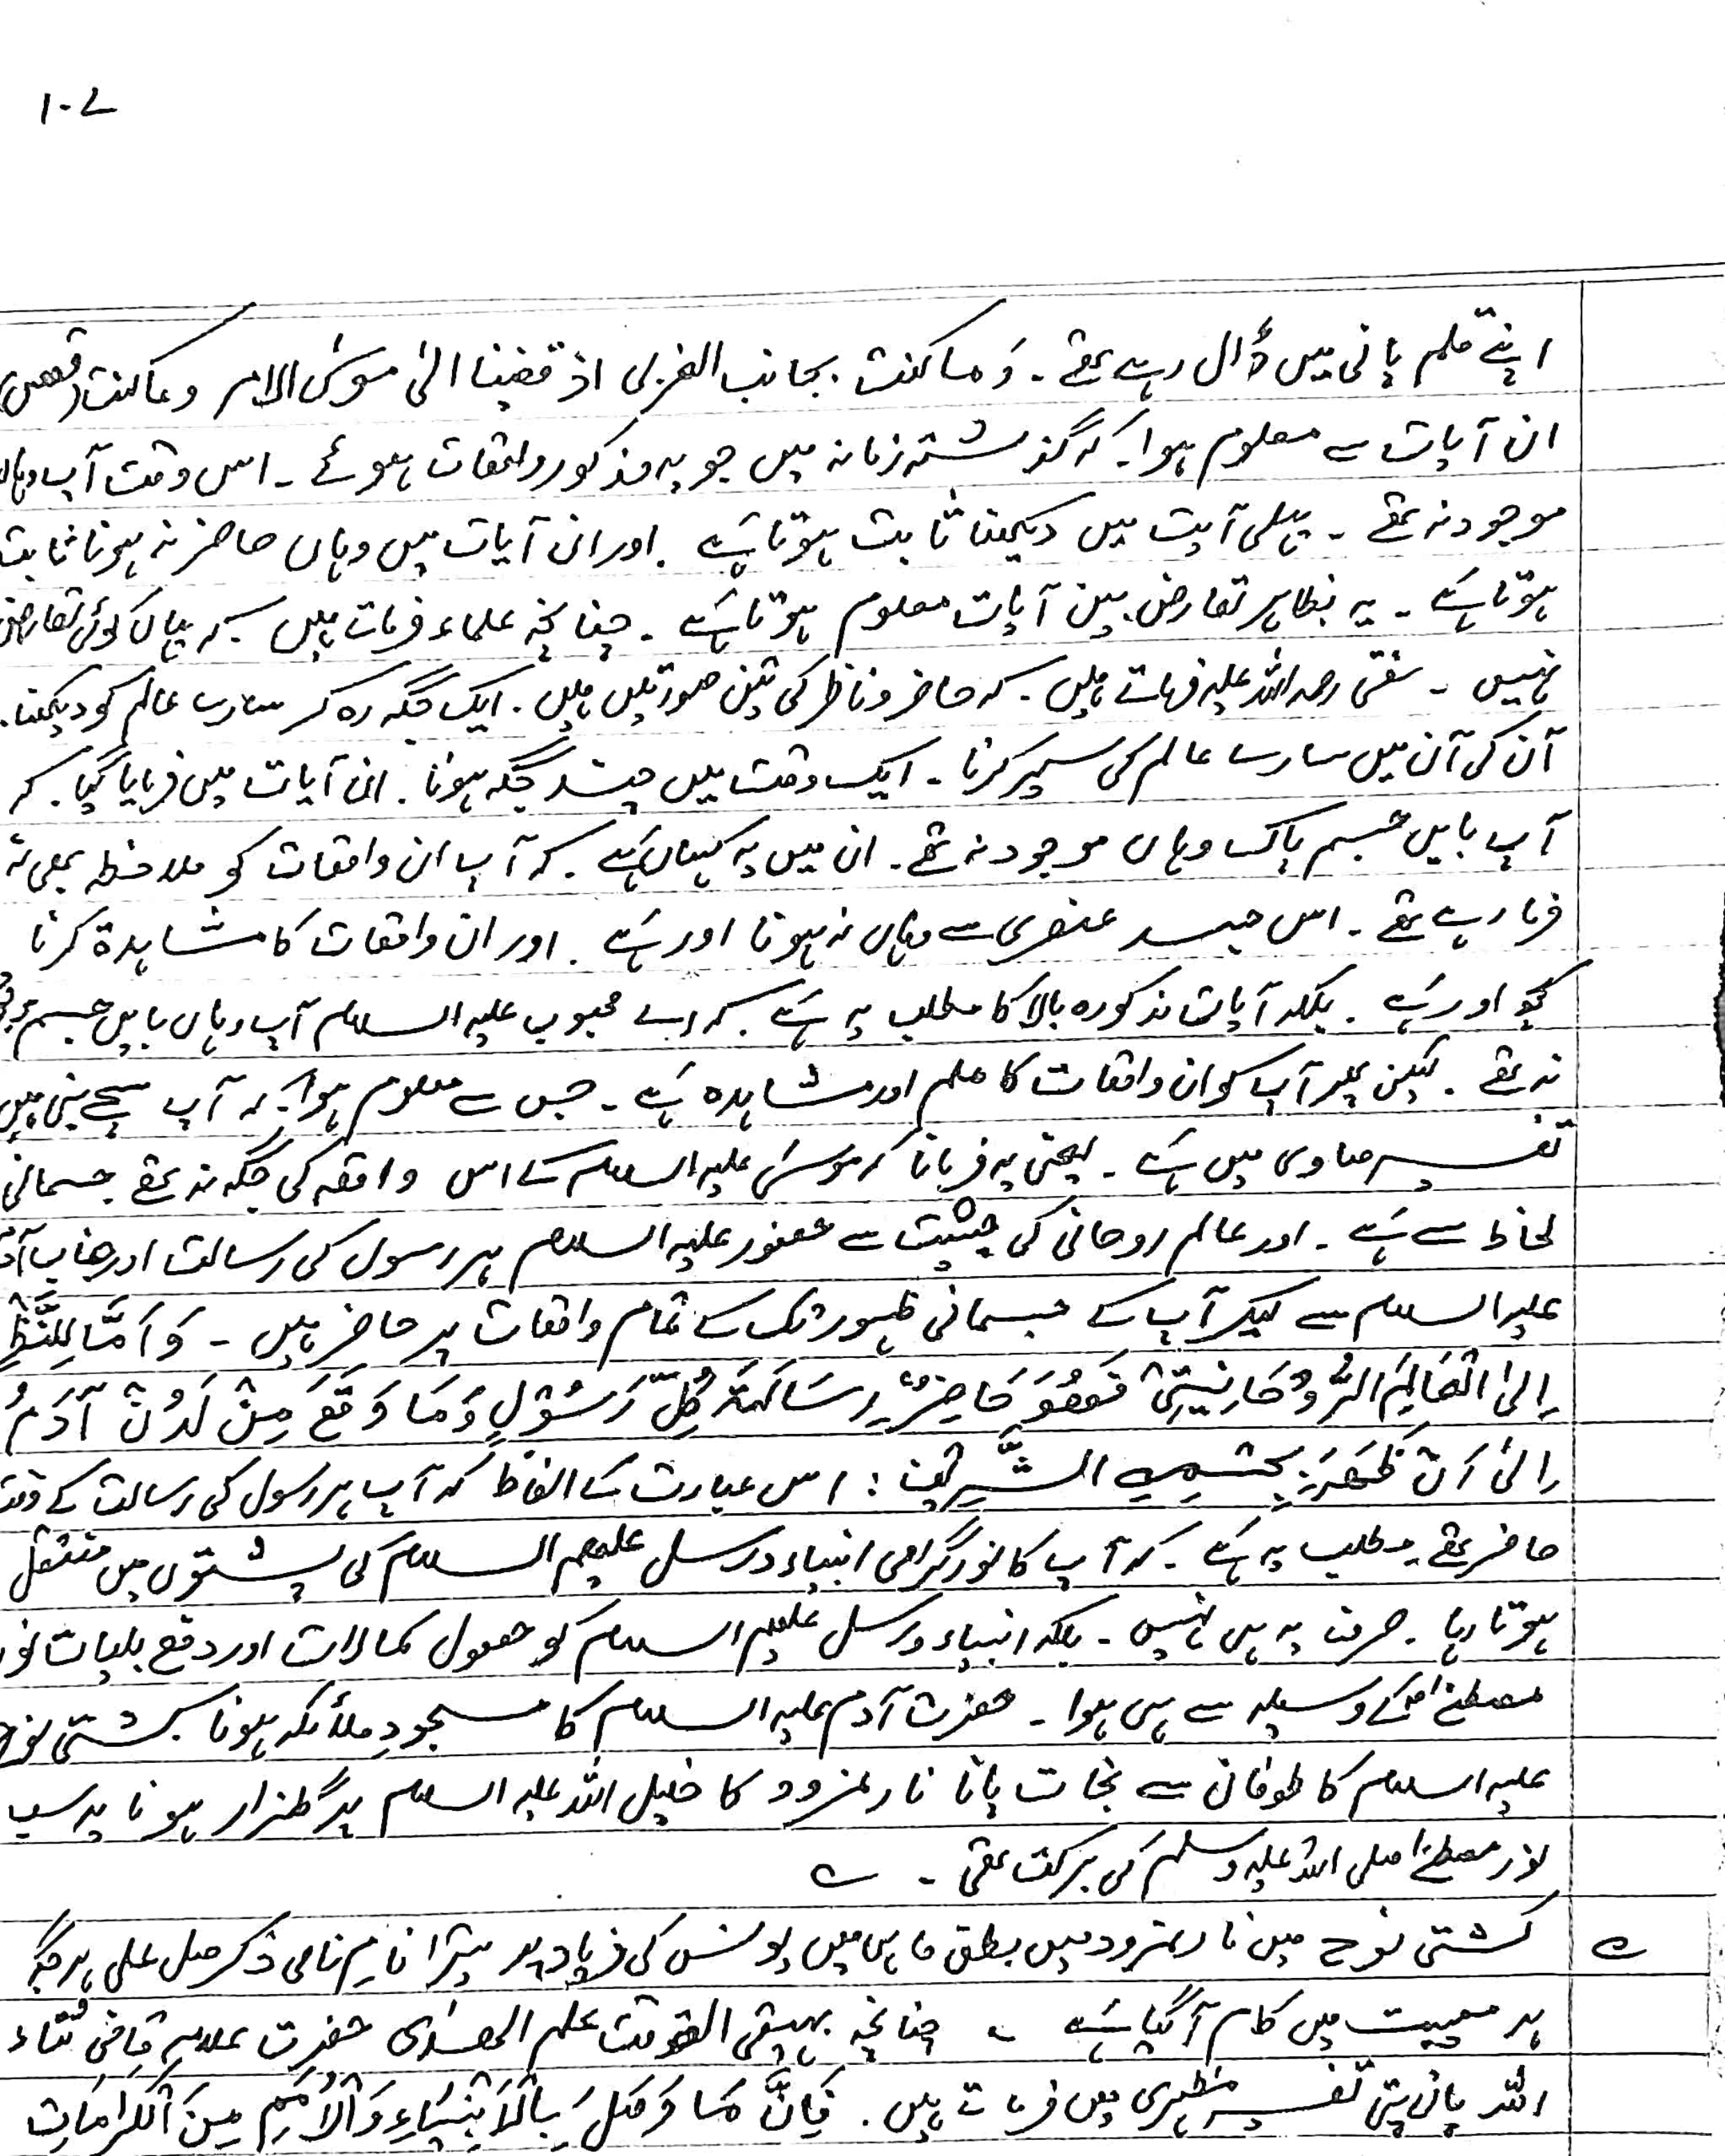 ۱۰۷
اپنے قلم پانی میں ڈال رہے تھے ۔ وَما کنت بجانب الغربی اذ قضینا الیٰ موسیٰ الامر وماکنت (قصص)
ان آیات سے معلوم ہوا ۔ کہ گذشتہ زمانہ میں جو یہ مذکور واقعات ہوئے ۔ اس وقت آپ وہاں
موجود نہ تھے ۔ پہلی آیت میں دیکھنا ثابت ہوتا ہَے ۔ اور ان آیات میں وہاں حاضر نہ ہونا ثابت
ہوتا ہَے ۔ یہ بظاہر تعارض بین آیات معلوم ہوتا ہَے ۔ چنانچہ علماء فرماتے ہیں ۔ کہ یہاں کوئی تعارض
نہیں ۔ رحمہ اللہ علیہ فرماتے ہیں ۔ کہ حاضر و ناظر کی تین صورتیں ہیں ۔ ایک جگہ رہ کر سارے عالم کو دیکھنا ۔
آن کی آن میں سارے عالم کی سیر کرنا ۔ ایک وقت میں چند جگہ ہونا ۔ ان آیات میں فرمایا گیا ۔ کہ
آپ بایں جسم پاک وہاں موجود نہ تھے ۔ ان میں یہ کہاں ہَے ۔ کہ آپ ان واقعات کو ملاحظہ بھی نہ
فرما رہے تھے ۔ اس جسد عنصری سے وہاں نہ ہونا اور ہَے ۔ اور ان واقعات کا مشاہدۃ کرنا
کچھ اور ہَے ۔ بلکہ آیات مذکورہ بالا کا مطلب یہ ہَے ۔ کہ اے محبوب علیہ السلام آپ وہاں بایں جسم
نہ تھے ۔ لیکن پھر آپ کو ان واقعات کا علم اور مشاہدہ ہَے ۔ جس سے معلوم ہوا ۔ کہ آپ سچے نبی ہیں
تفسیر صاوی میں ہَے ۔ یعنی یہ فرمانا کہ موسیٰ علیہ السلام کے اس واقعہ کی جگہ نہ تھے جسمانی
لحاظ سے ہَے ۔ اور عالم روحانی کی حیثیت سے حضور علیہ السلام ہر رسول کی رسالت اور جناب آدم
علیہ السلام سے لیکر آپ کے جسمانی ظہور تک کے تمام واقعات پر حاضر ہیں ۔ وَاَمَّا لِلنَّظَرِ
اِلیٰ الْعَالِمَ الرُّوْحَانِیَّتِیْ فَھُوَ حَاضِرٌ رِسَالَۃَ کُلِّ رَسُوْلٍ وَمَا وَقَعَ مِنْ لَدُنْ آدَمُ
اِلیٰ اَنْ ظَھَرَ بِجِسْمِہِ الشَّرِیْف : اس عبارت کے الفاظ کہ آپ ہر رسول کی رسالت کے وقت
حاضر تھے ۔ مطلب یہ ہَے ۔ کہ آپ کا نور گرامی انبیاء و رسل علیھم السلام کی پشتوں میں منتقل
ہوتا رہا ۔ صرف یہ ہی نہیں ۔ بلکہ انبیاء و رسل علیھم السلام کو حصول کمالات اور دفع بلیات نور
مصطفےٰ کے وسیلہ سے ہی ہوا ۔ حضرت آدم علیہ السلام کا مسجودِ ملأئکہ ہونا کشتی نوح
علیہ السلام کا طوفان سے نجات پانا نار نمرود کا خلیل اللہ علیہ السلام پر گلزار ہونا یہ سب
نور مصطفےٰ صلی اللہ علیہ وسلم کی برکت تھی ۔ ؎
؎ کشتی نوح میں نار نمرود میں بطن ماہی میں یونس کی فریاد پر تیرا نامِ نامی ذکر صل علی ہر جگہ
ہر مصیبت میں کام آ گیا ہَے ۔ چنانچہ بہیقی الوقت علم الھدٰی حضرت علامہ قاضی ثناء
اللہ پانی پتی تفسیر مظہری میں فرماتے ہیں ۔ فَاِنَّ مَا وَصَلَ بِالْاَنْبِیَاءِ وَالْاُمَمِ مِنَ الْکَرَامَاتِ